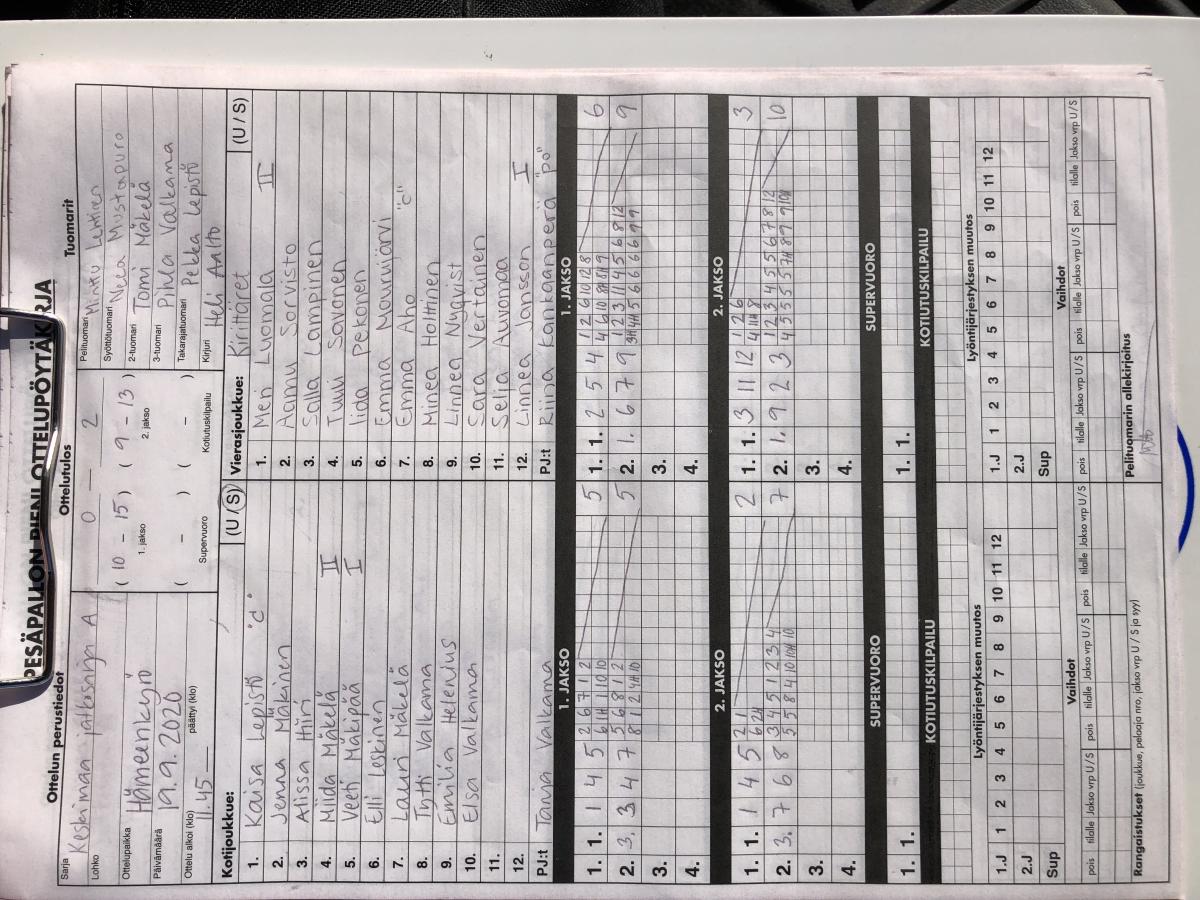 PESÄPALLON PIENI OTTELUPÖYTÄKIRJA
Ottelun perustiedot
Sarja
Keskimaa jatkosarja A
Lohko
Ottelupaikka
Hämeenkyrö
Päivämäärä
19.9.2020
Ottelu alkoi (klo) päättyi (klo)
11.45
Ottelutulos
0 – 2
( 10 – 15 ) ( 9 – 13 )
1. jakso 2. jakso
( – ) ( – )
Supervuoro Kotiutuskilpailu
Tuomarit
Pelituomari Minttu Lehtinen
Syöttötuomari Neea Mustapuro
2-tuomari Tomi Mäkelä
3-tuomari Pihla Valkama
Takarajatuomari Pekka Lepistö
Kirjuri Heli Aalto
Kotijoukkue: (U / S)
1. Kaisa Lepistö "c"
2. Jenna Mäkinen
3. Atissa Hiiri
4. Miida Mäkelä II
5. Veeti Mäkipää I
6. Elli Leskinen
7. Lauri Mäkelä
8. Tytti Valkama
9. Emilia Helenius
10. Elsa Valkama
11.
12.
PJ:t Tanja Valkama
Vierasjoukkue: Kirittäret (U / S)
1. Meri Luomala II
2. Aamu Sorvisto
3. Salla Lampinen
4. Tuuvi Savonen
5. Iida Pekonen
6. Emma Nourujärvi
7. Emma Aho "c"
8. Minea Holttinen
9. Linnea Nyqvist
10. Sara Vertainen
11. Selia Auvomaa
12. Linnea Jansson I
PJ:t Riina Kankaanperä "po"
1. JAKSO
1. 1. 1 4 5 2 6 7 1 2 5
6 1H 1 10 10
2. 3. 3 4 7 5 6 8 1 2 5
8 1 2 4H 10
3.
4.
1. JAKSO
1. 1. 2 5 4 1 2 6 10 12 8 6
4 6 10 8H 8H 9
2. 1. 6 7 9 1 2 3 11 4 5 6 8 12 9
3H 4H 5 6 6 6 6 9 9
3.
4.
2. JAKSO
1. 1. 1 4 5 2 1 2
6 2H
2. 3. 7 6 8 3 4 5 1 2 3 4 7
5 5 8 4 10 10H 10
3.
4.
2. JAKSO
1. 1. 3 11 12 1 2 6 3
4 1H 8
2. 1. 9 2 3 1 2 3 4 5 5 6 7 8 12 10
4 5 5 5 5 7H 8 9 9 10H
3.
4.
SUPERVUORO
1. 1.
SUPERVUORO
1. 1.
KOTIUTUSKILPAILU
KOTIUTUSKILPAILU
Lyöntijärjestyksen muutos
1.J 1 2 3 4 5 6 7 8 9 10 11 12
2.J
Sup
Lyöntijärjestyksen muutos
1.J 1 2 3 4 5 6 7 8 9 10 11 12
2.J
Sup
Vaihdot
pois tilalle Jakso vrp U / S pois tilalle Jakso vrp U / S pois tilalle Jakso vrp U / S
Vaihdot
pois tilalle Jakso vrp U / S pois tilalle Jakso vrp U / S pois tilalle Jakso vrp U / S
Rangaistukset (joukkue, pelaaja nro, jakso vrp U / S ja syy)
Pelituomarin allekirjoitus